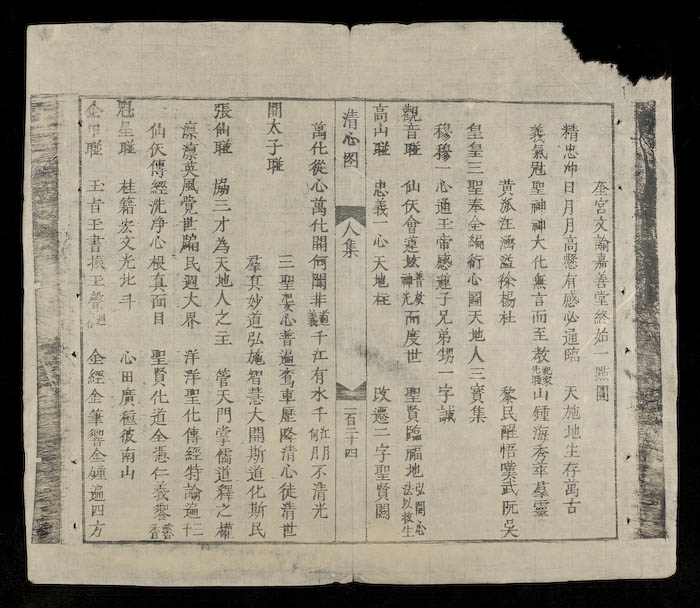 奎宮文諭嘉善堂終如一點圖
精忠冲日月月高懸有感必通臨 天施地生存萬古
義氣冠聖神神大化無言而至教 山鍾海秀率羣靈
黃派汪濟溢徐楊杜 黎民醒悟嘆武阮吳
皇皇三聖奉全編衍心圖天地人三寶集
穆穆一心通玉帝感蓮子兄弟甥一字誠
觀音 仙佚會蓮坛普放神光而度世 聖賢臨福地弘開心法以救生
高山 忠義一心天地柱 改遷二字聖賢關
清心图 人集 一百二十四
萬化從心萬化開何關非 千江有水千江 不清光
三聖 心普遍鸞車歷降清心徒清世
關太子
羣真妙道弘施智慧大開斯道化斯民
張仙 協三才為天地人之主 管天門掌儒道釋之權
凛凛英風覺世臨民週大界 洋洋聖化傳經特諭遍三千
仙佚傳經洗淨心根真面目 聖賢化道全憑仁義
魁星 桂籍宏文光北斗 心田廣種彼南山
金甲 玉旨玉書 玉聲 金經金筆響金鐘遍四方